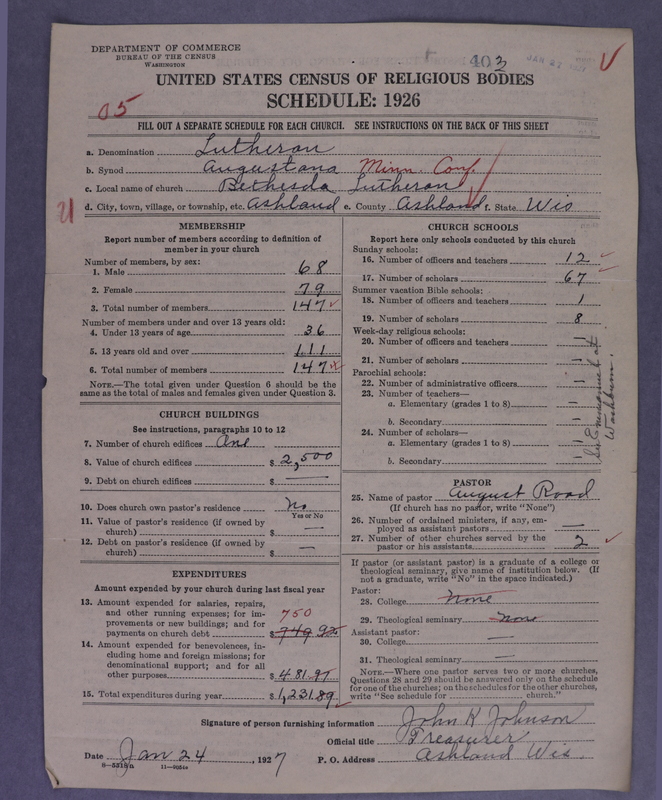 DEPARTMENT OF COMMERCE
BUREAU OF THE CENSUS
WASHINGTON
403
JAN 27
UNITED STATES CENSUS OF RELIGIOUS BODIES
SCHEDULE: 1926
05
FILL OUT A SEPARATE SCHEDULE FOR EACH CHURCH. SEE INSTRUCTIONS ON THE BACK OF THIS SHEET
a. Denomination Lutheran
b. Synod Augustana Minn. Conf.
c. Local name of church Bethesda Lutheran
21
d. City, town, village, or township, etc. Ashland e. County Ashland f. State Wis
MEMBERSHIP
Report number of members according to definition of
member in your church
Number of members, by sex:
1. Male 68
2. Female 79
3. Total number of members 147
Number of members under and over 13 years old:
4. Under 13 years of age 36
5. 13 years old and over 111
6. Total number of members 147
NOTE.—The total given under Question 6 should be the
same as the total of males and females given under Question 3.
CHURCH BUILDINGS
See instructions, paragraphs 10 to 12
7. Number of church edifices One
8. Value of church edifices $ 2,500
9. Debt on church edifices $ —
10. Does church own pastor's residence No
Yes or No
11. Value of pastor's residence (if owned by
church) $ —
12. Debt on pastor's residence (if owned by
church) $ —
EXPENDITURES
Amount expended by your church during last fiscal year
13. Amount expended for salaries, repairs,
and other running expenses; for im-
provements or new buildings; and for
payments on church debt $ 749.92
750
14. Amount expended for benevolences, in-
cluding home and foreign missions; for
denominational support; and for all
other purposes $ 481.97
15. Total expenditures during year $ 1,231.89
CHURCH SCHOOLS
Report here only schools conducted by this church
Sunday schools:
16. Number of officers and teachers 12
17. Number of scholars 67
Summer vacation Bible schools:
18. Number of officers and teachers 1
19. Number of scholars 8
Week-day religious schools:
20. Number of officers and teachers —
21. Number of scholars —
Parochial schools:
22. Number of administrative officers —
23. Number of teachers—
a. Elementary (grades 1 to 8) —
b. Secondary —
24. Number of scholars—
a. Elementary (grades 1 to 8) —
b. Secondary —
Emmanuel at
Washburn.
PASTOR
25. Name of pastor August Road
(If church has no pastor, write "None")
26. Number of ordained ministers, if any, em-
ployed as assistant pastors —
27. Number of other churches served by the
pastor or his assistants 2
If pastor (or assistant pastor) is a graduate of a college or
theological seminary, give name of institution below. (If
not a graduate, write "No" in the space indicated.)
Pastor:
28. College None
29. Theological seminary None
Assistant pastor:
30. College —
31. Theological seminary —
NOTE.—Where one pastor serves two or more churches,
Questions 28 and 29 should be answered only on the schedule
for one of the churches; on the schedules for the other churches,
write "See schedule for church."
Signature of person furnishing information John K Johnson
Official title Treasurer
Date Jan 24, 1927 P. O. Address Ashland Wis.
8—5318a 11—9054a